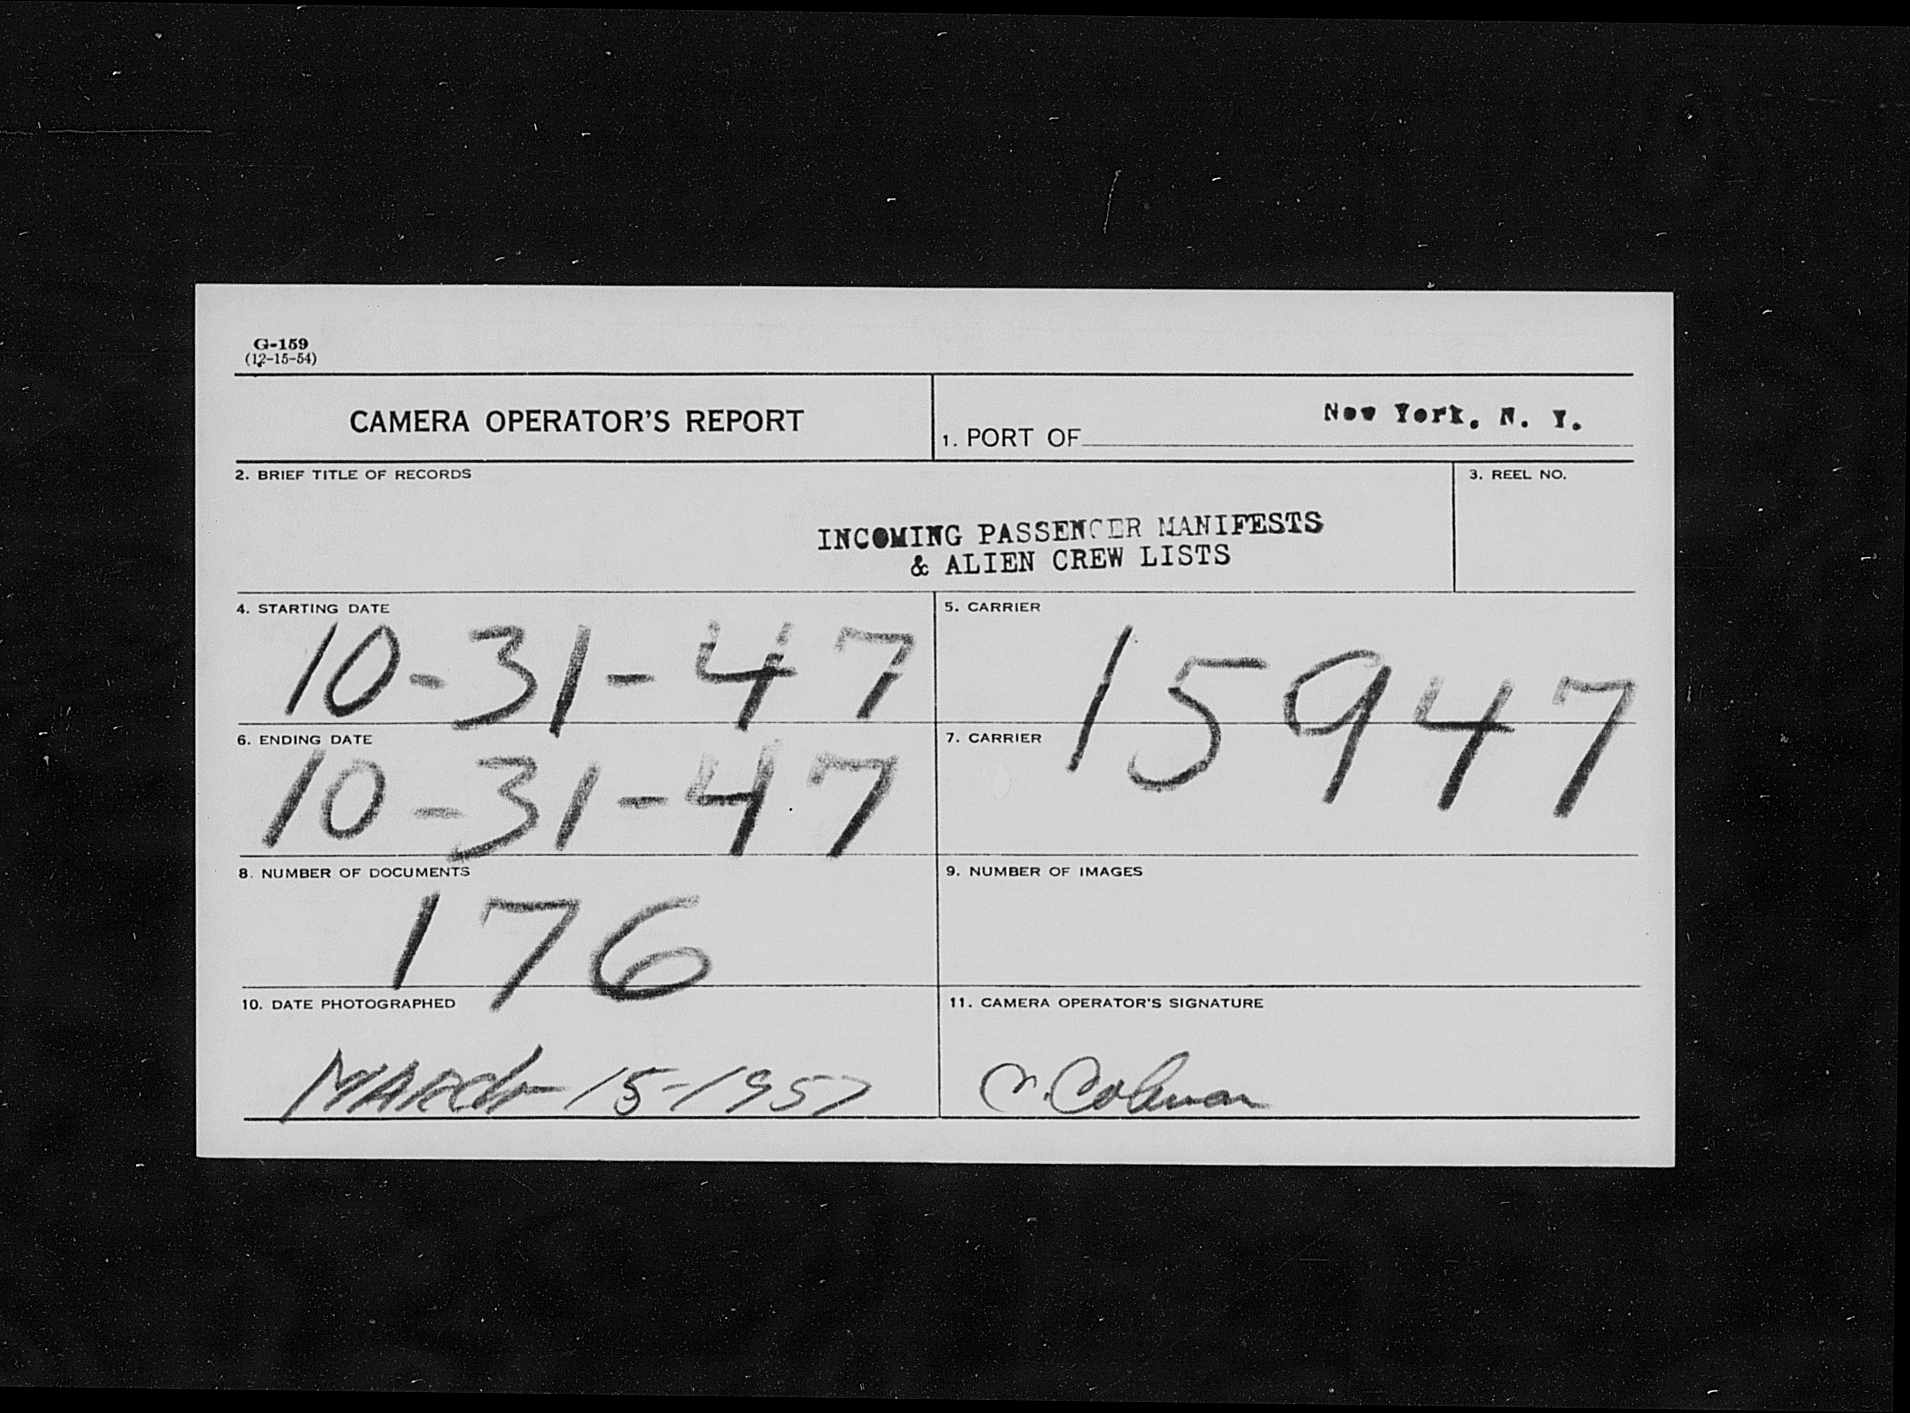 G-159
(12-15-54)
CAMERA OPERATOR'S REPORT
1. PORT OF New York, N. Y.
2. BRIEF TITLE OF RECORDS
3. REEL NO.
INCOMING PASSENGER MANIFESTS
& ALIEN CREW LISTS
4. STARTING DATE
10-31-47
5. CARRIER
15947
6. ENDING DATE
10-31-47
7. CARRIER
8. NUMBER OF DOCUMENTS
176
9. NUMBER OF IMAGES
10. DATE PHOTOGRAPHED
MARCh 15-1957
11. CAMERA OPERATOR'S SIGNATURE